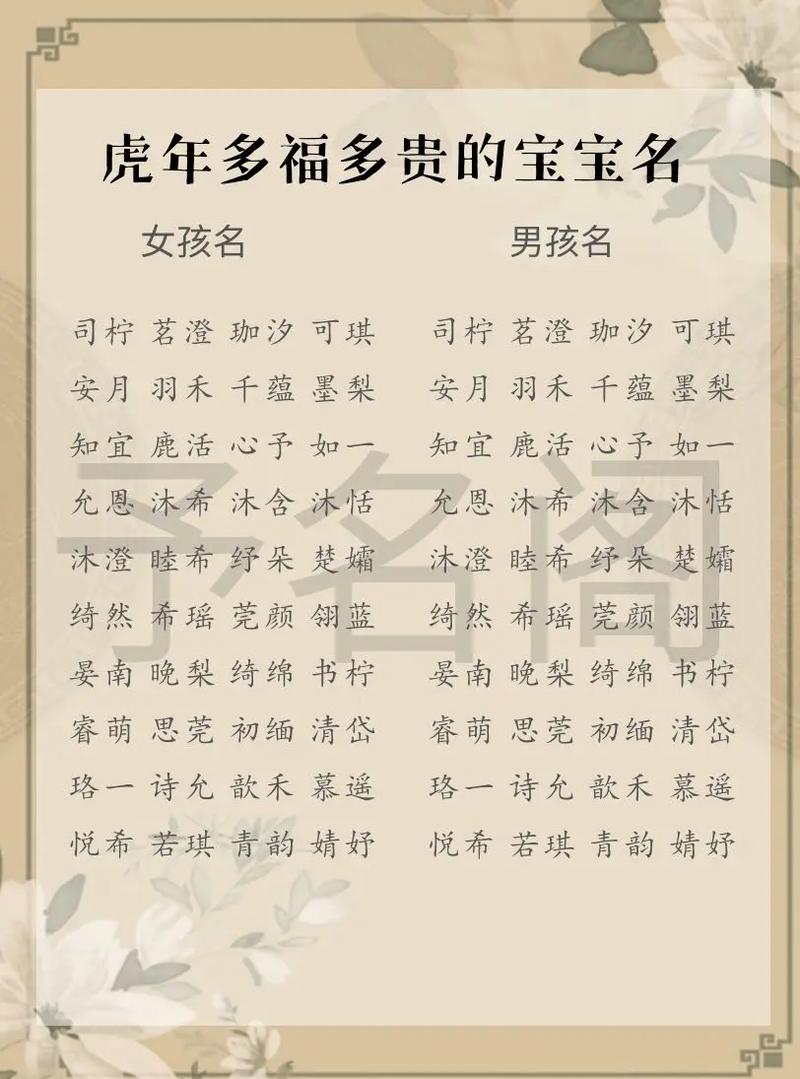 虎年多福多贵的宝宝名
女孩名 男孩名
司柠 茗澄 珈汐 可琪 司柠 茗澄 珈汐 可琪
安月 羽禾 千蕴 墨梨 安月 羽禾 千蕴 墨梨
知宜 鹿活 心予 如一 知宜 鹿活 心予 如一
允恩 沐希 沐含 沐恬 允恩 沐希 沐含 沐恬
沐澄 睦希 纾朵 楚孀 沐澄 睦希 纾朵 楚孀
绮然 希瑶 莞颜 翎蓝 绮然 希瑶 莞颜 翎蓝
晏南 晚梨 绮绵 书柠 晏南 晚梨 绮绵 书柠
睿萌 思莞 初缅 清岱 睿萌 思莞 初缅 清岱
珞一 诗允 歆禾 慕遥 珞一 诗允 歆禾 慕遥
悦希 若琪 青韵 婧妤 悦希 若琪 青韵 婧妤
予名阁